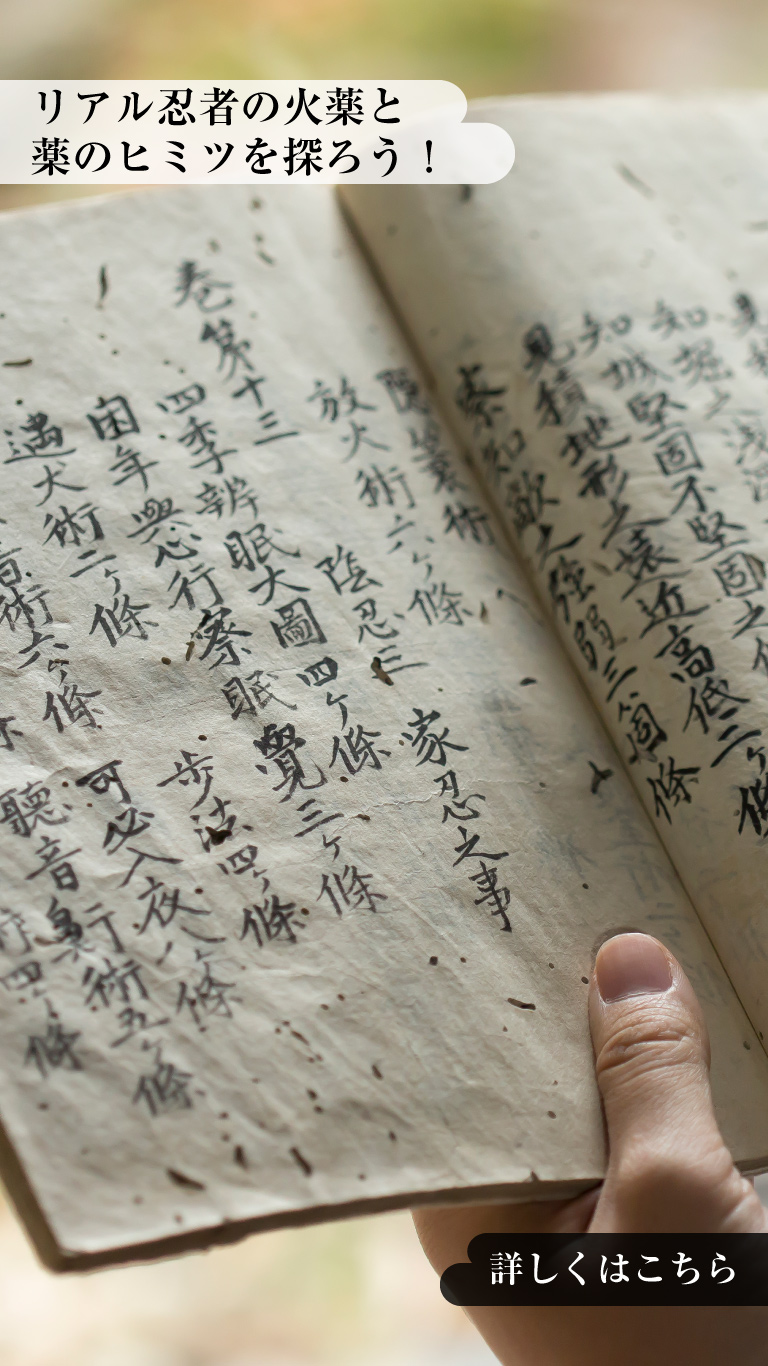 リアル忍者の火薬と
薬のヒミツを探ろう！
知堀之
知城堅固不堅固之
見積地形之遠近高低三ヶ條
察知敵之強弱三箇條
術
放火術六ヶ條
巻第十三 陰忍三 家忍之事
四季辨眠大圖四ヶ條
因年心行察眠覺三ヶ條
遇犬術二ヶ條 歩法四ヶ條
音術六ヶ條 可必入夜八ヶ條
聽音 術五ヶ條
四ヶ條
詳しくはこちら